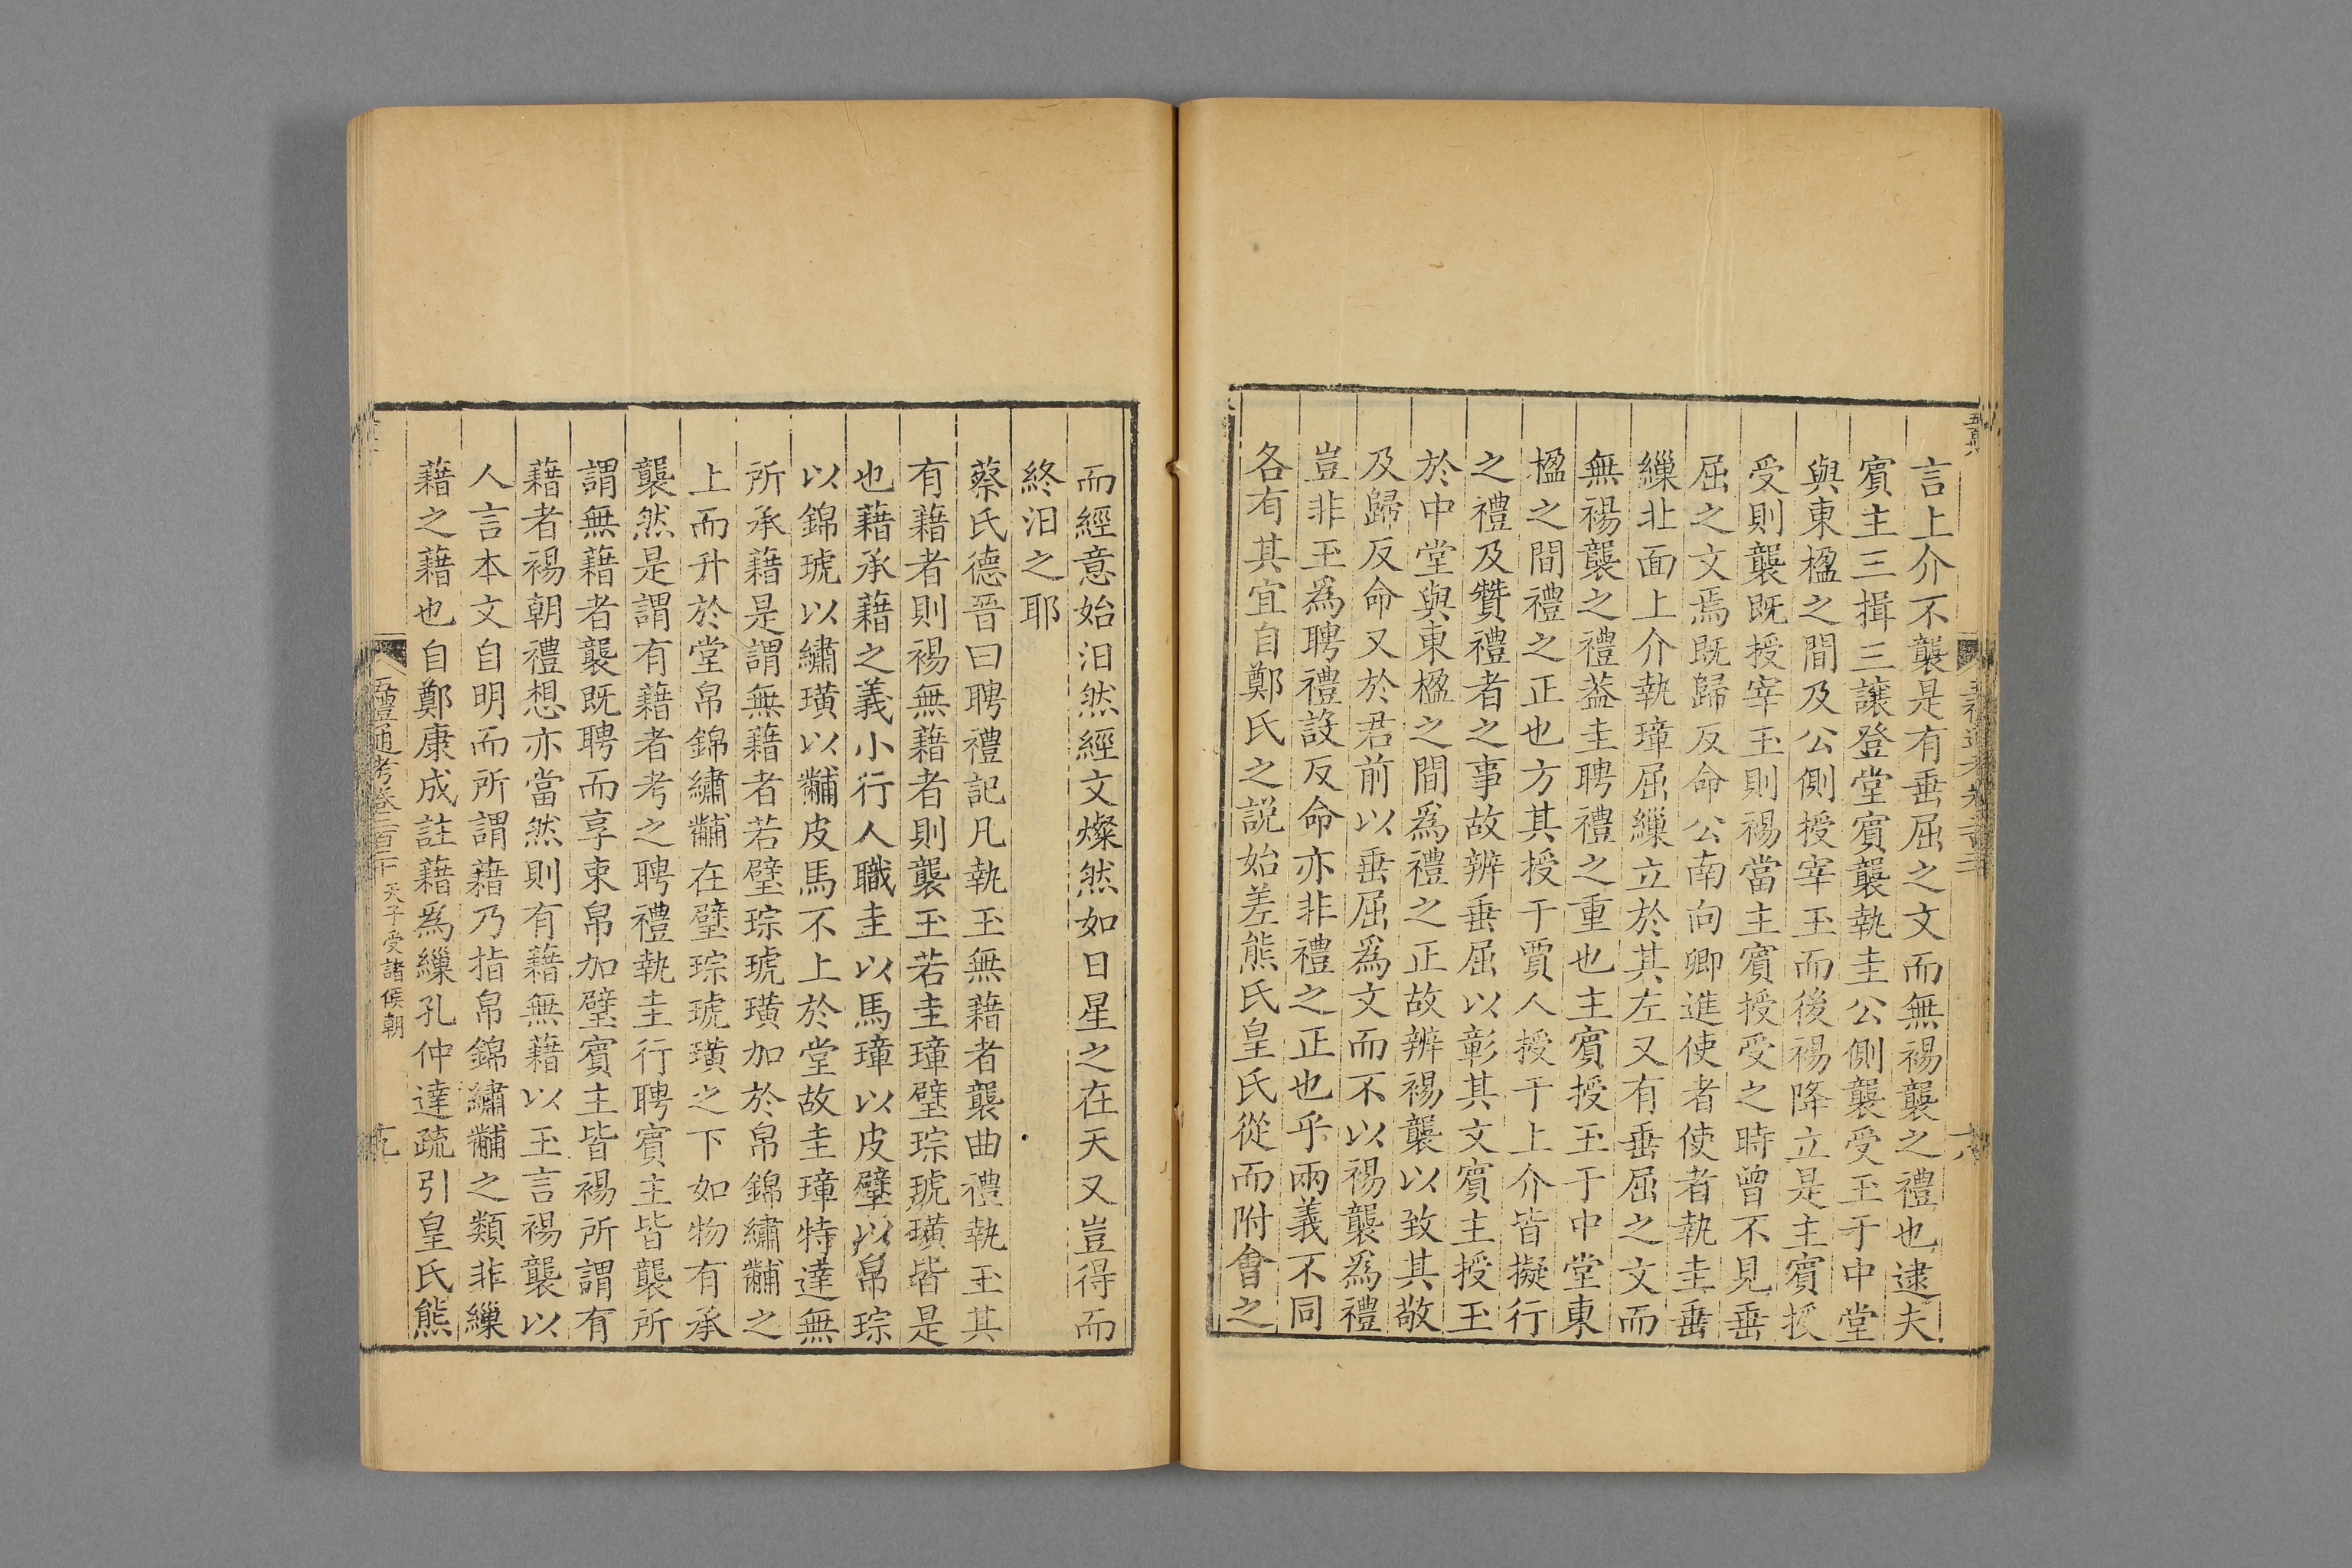 言上介不襲是有垂屈之文而無裼襲之禮也逮夫
賓主三揖三讓登堂賓襲執圭公側襲受玉于中堂
與東楹之間及公側授宰玉而後裼降立是主賓授
受則襲既授宰玉則裼當主賓授受之時曾不見垂
屈之文焉既歸反命公南向卿進使者使者執圭垂
繅北面上介執璋屈繅立於其左又有垂屈之文而
無裼襲之禮葢圭聘禮之重也主賓授玉于中堂東
楹之間禮之正也方其授于賈人授于上介皆擬行
之禮及贊禮者之事故辨垂屈以彰其文賓主授玉
於中堂與東楹之間爲禮之正故辨裼襲以致其敬
及歸反命又於君前以垂屈爲文而不以裼襲爲禮
豈非玉爲聘禮設反命亦非禮之正也乎兩義不同
各有其宜自鄭氏之説始差熊氏皇氏從而附會之
而經意始汨然經文燦然如日星之在天又豈得而
終汨之耶
蔡氏德晉曰聘禮記凡執玉無藉者襲曲禮執玉其
有藉者則裼無藉者則襲玉若圭璋璧琮琥璜皆是
也藉承藉之義小行人職圭以馬璋以皮璧以帛琮
以錦琥以繡璜以黼皮馬不上於堂故圭璋特達無
所承藉是謂無藉者若璧琮琥璜加於帛錦繡黼之
上而升於堂帛錦繡黼在璧琮琥璜之下如物有承
襲然是謂有藉者考之聘禮執圭行聘賓主皆襲所
謂無藉者襲既聘而享束帛加璧賓主皆裼所謂有
藉者裼朝禮想亦當然則有藉無藉以玉言裼襲以
人言本文自明而所謂藉乃指帛錦繡黼之類非繅
藉之藉也自鄭康成註藉爲繅孔仲達疏引皇氏熊
五禮通考卷二百二十 天子受諸侯朝